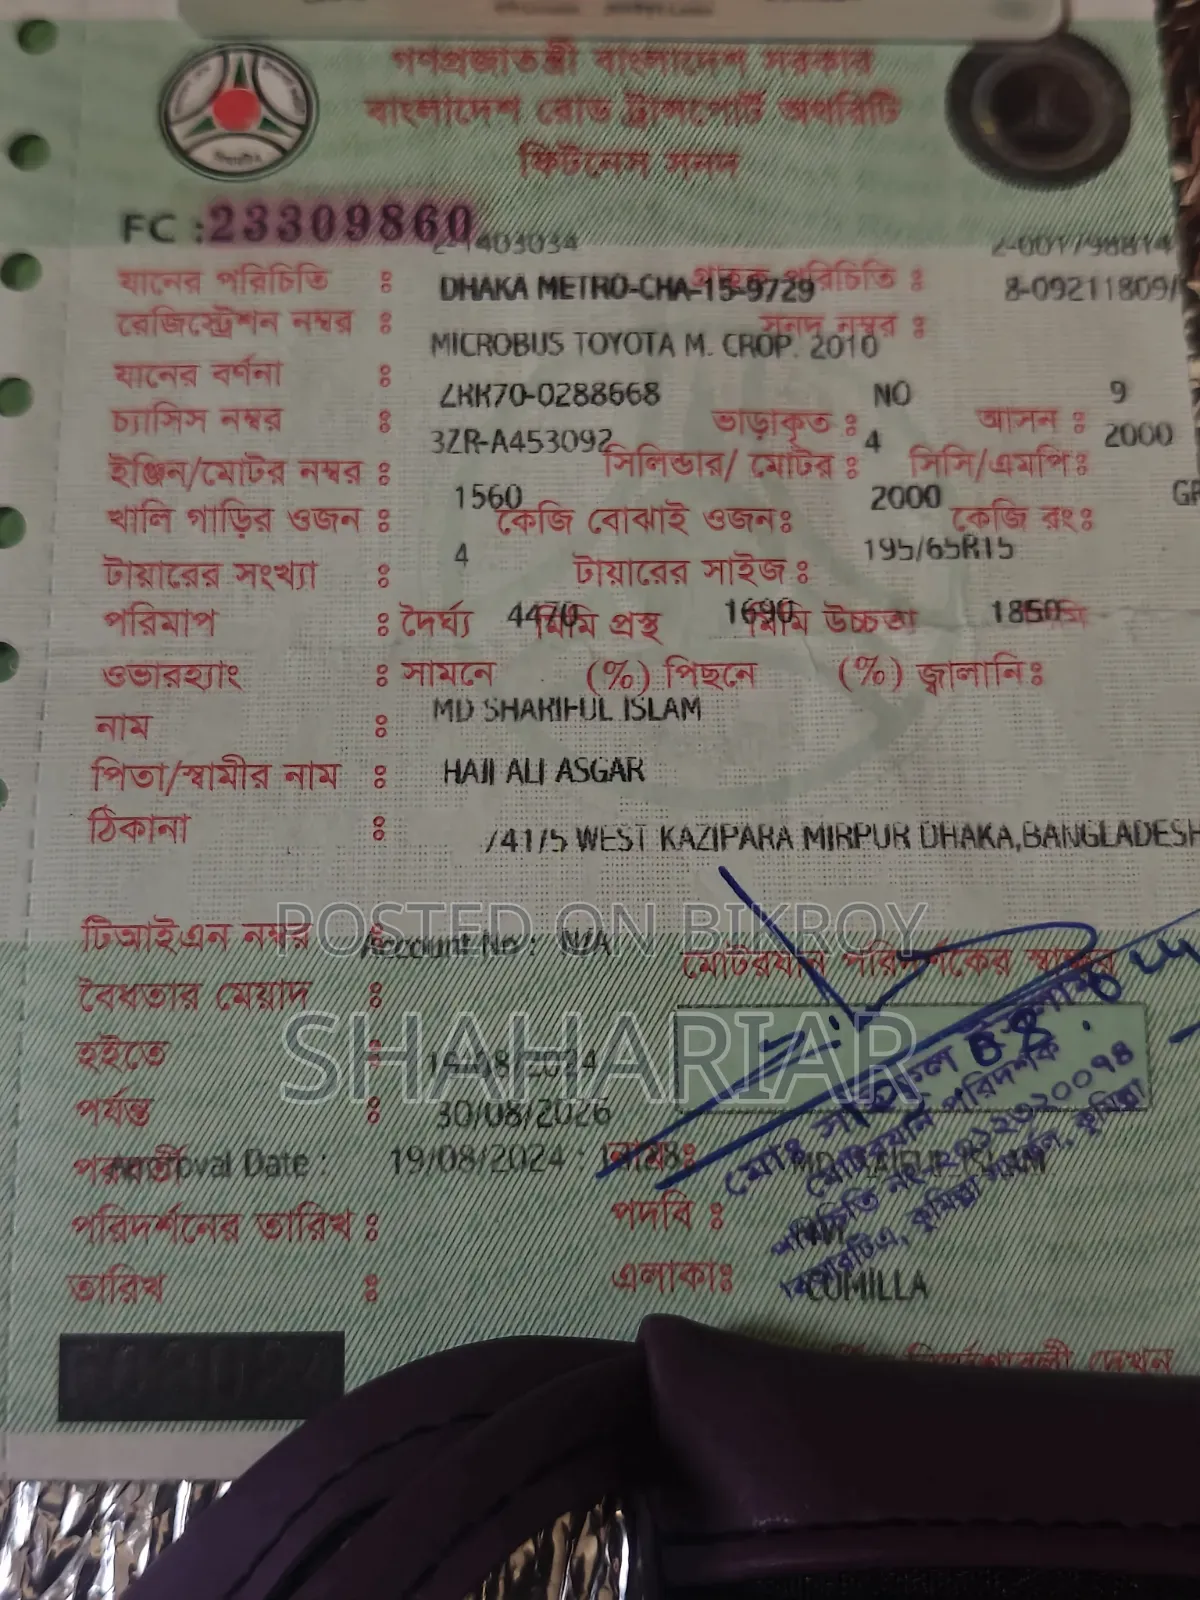 গণপ্রজাতন্ত্রী বাংলাদেশ সরকার
বাংলাদেশ রোড ট্রান্সপোর্ট অথরিটি
ফিটনেস সনদ
FC : 23309860
2-1403034 2-001798814
যানের পরিচিতি : গ্রাহক পরিচিতি :
DHAKA METRO-CHA-15-9729 8-09211809/
রেজিস্ট্রেশন নম্বর : সনদ নম্বর :
MICROBUS TOYOTA M. CROP. 2010
যানের বর্ণনা :
ZRR70-0288668 NO 9
চ্যাসিস নম্বর : ভাড়াকৃত : আসন :
3ZR-A453092 4 2000
ইঞ্জিন/মোটর নম্বর : সিলিন্ডার/ মোটর : সিসি/এমপি:
1560 2000
খালি গাড়ির ওজন : কেজি বোঝাই ওজন: কেজি রং:
4 195/65R15
টায়ারের সংখ্যা : টায়ারের সাইজ :
পরিমাপ : দৈর্ঘ্য 4470 মিমি প্রস্থ 1690 মিমি উচ্চতা 1850
ওভারহ্যাং : সামনে (%) পিছনে (%) জ্বালানি:
নাম : MD SHARIFUL ISLAM
পিতা/স্বামীর নাম : HAJI ALI ASGAR
ঠিকানা : /41/5 WEST KAZIPARA MIRPUR DHAKA,BANGLADESH
POSTED ON BIKROY
টিআইএন নম্বর : Account No : N/A
মোটরযান পরিদর্শকের স্বাক্ষর
বৈধতার মেয়াদ :
SHAHARIAR
হইতে :
পর্যন্ত : 30/08/2026
পরবর্তী Date : 19/08/2024 : নাম:
পরিদর্শনের তারিখ : পদবি :
তারিখ : এলাকা: COMILLA
মোটরযান পরিদর্শক